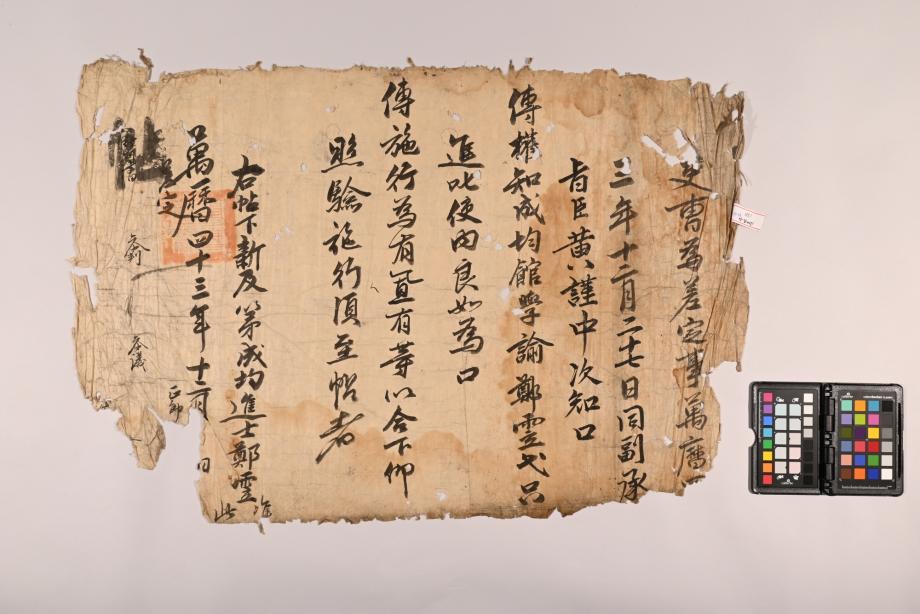 吏曹為差定事萬曆
三年十二月二十七日同副承
旨臣黃謹中次知口
傳權知成均館學諭鄭霊弋只
進叱使內良如為口
傳施行為有置有等以合下仰
照驗施行須至帖者
右帖下新及第成均進士鄭霊
准此
萬曆四十三年十二月 日
差定
帖
正郎
參議